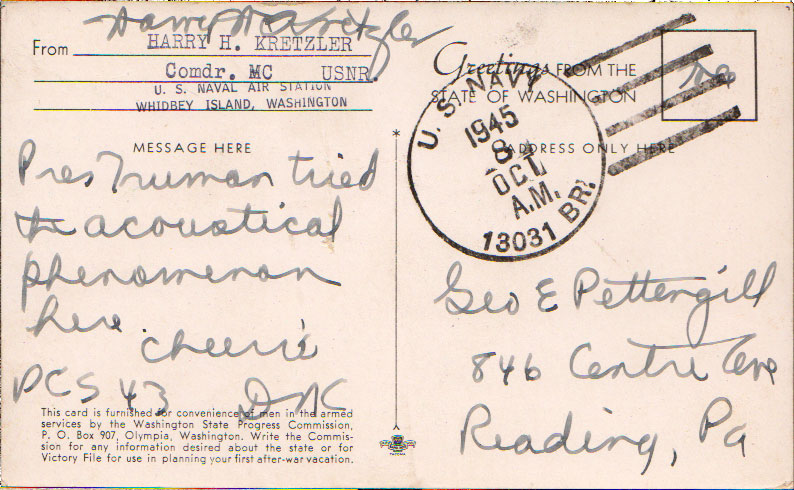 Harry H Kretzler
From HARRY H. KRETZLER
Comdr. MC USNR.
U. S. NAVAL AIR STATION
WHIDBEY ISLAND, WASHINGTON
MESSAGE HERE
Pres Truman tried
the acoustical
phenomenon
here
cheerie
PCS 43
This card is furnished for convenience of men in the armed
services by the Washington State Progress Commission,
P. O. Box 907, Olympia, Washington. Write the Commis-
sion for any information desired about the state or for
Victory File for use in planning your first after-war vacation.
Greetings FROM THE
STATE OF WASHINGTON
ADDRESS ONLY HERE
U. S. NAVY
1945
8
OCT
A.M.
13031 BR.
Geo E Pettengill
846 Centre Ave
Reading, Pa
TACOMA